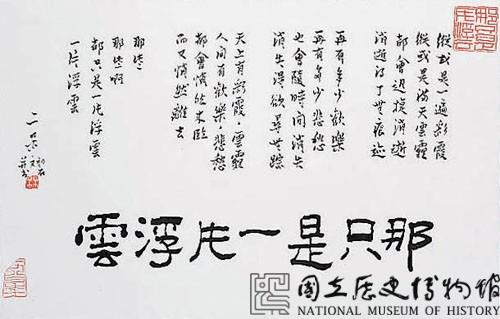 縱或是一遍彩霞
縱或是滿天雲霾
都會迅捷消逝
消逝得了無痕迹
再有多少歡樂
再有多少悲愁
也會隨時間消失
消失得欲尋無踪
天上有彩霞，雲霾
人間有歡樂，悲愁
都會悄然來臨
而又悄然離去
那些
那些啊
都只是一片浮雲
一片浮雲
那只是一片浮雲
國立歷史博物館
NATIONAL MUSEUM OF HISTORY